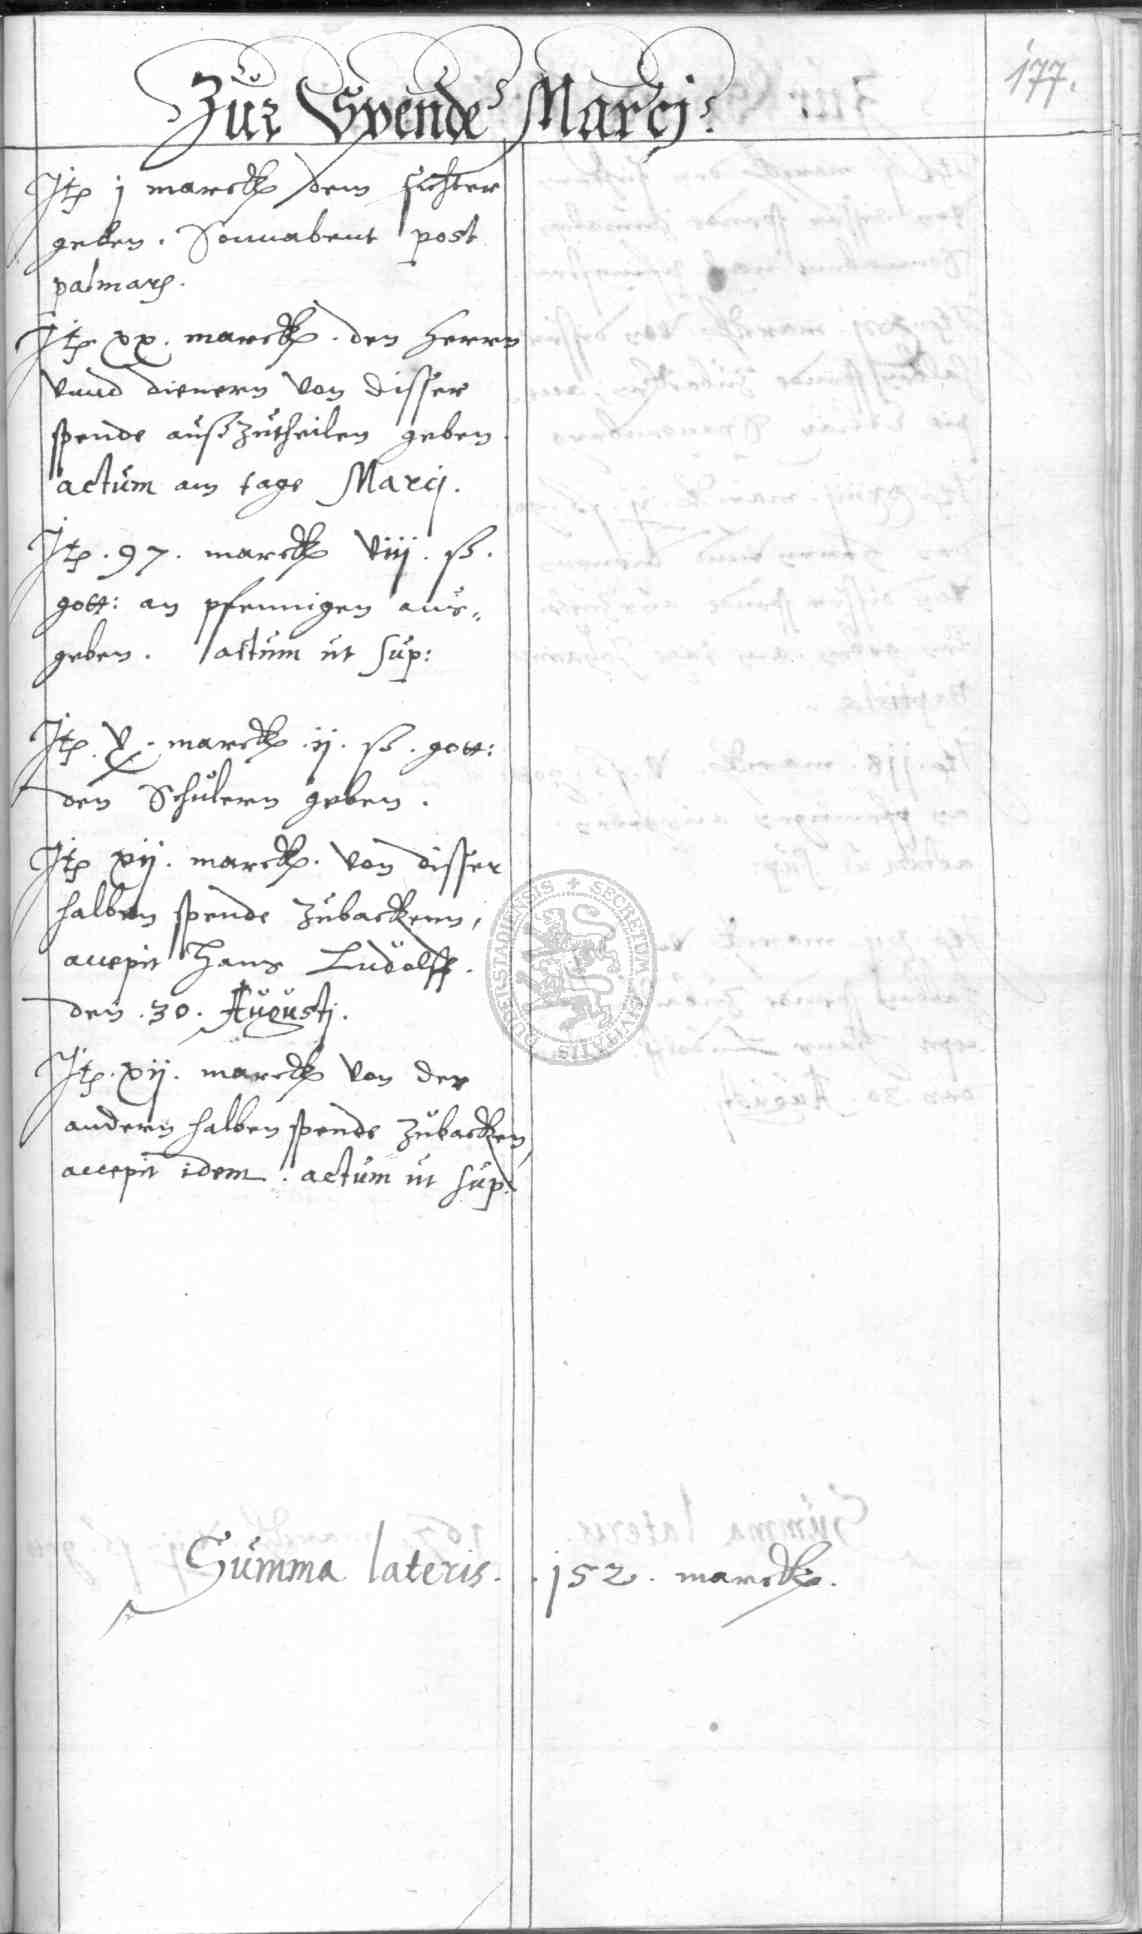 177.
Zur Spende Marcj.
Itp j marck dem sichter
geben. Sonnabent post
palmarum.
Itp xx. marck. den Herrn
vnnd dienern von disser
spende außzutheilen geben.
actum am tage Marcj.
Itp. 97. marck viij. ß.
gott: an pfennigen aus„
geben. actum ut sup:
Itp. x. marck. ij. ß. gott:
den Schulern geben.
Itp xij. marck. von disser
halben spende zubackenn,
accepit Hans Ludolff.
den .30. Augustj.
Itp. xij. marck von der
andern halben spende zubacken,
accepit idem. actum ut sup.
SECRETUM CIVITATIS DUDERSTADIENSIS
Summa lateris. .152. marck.